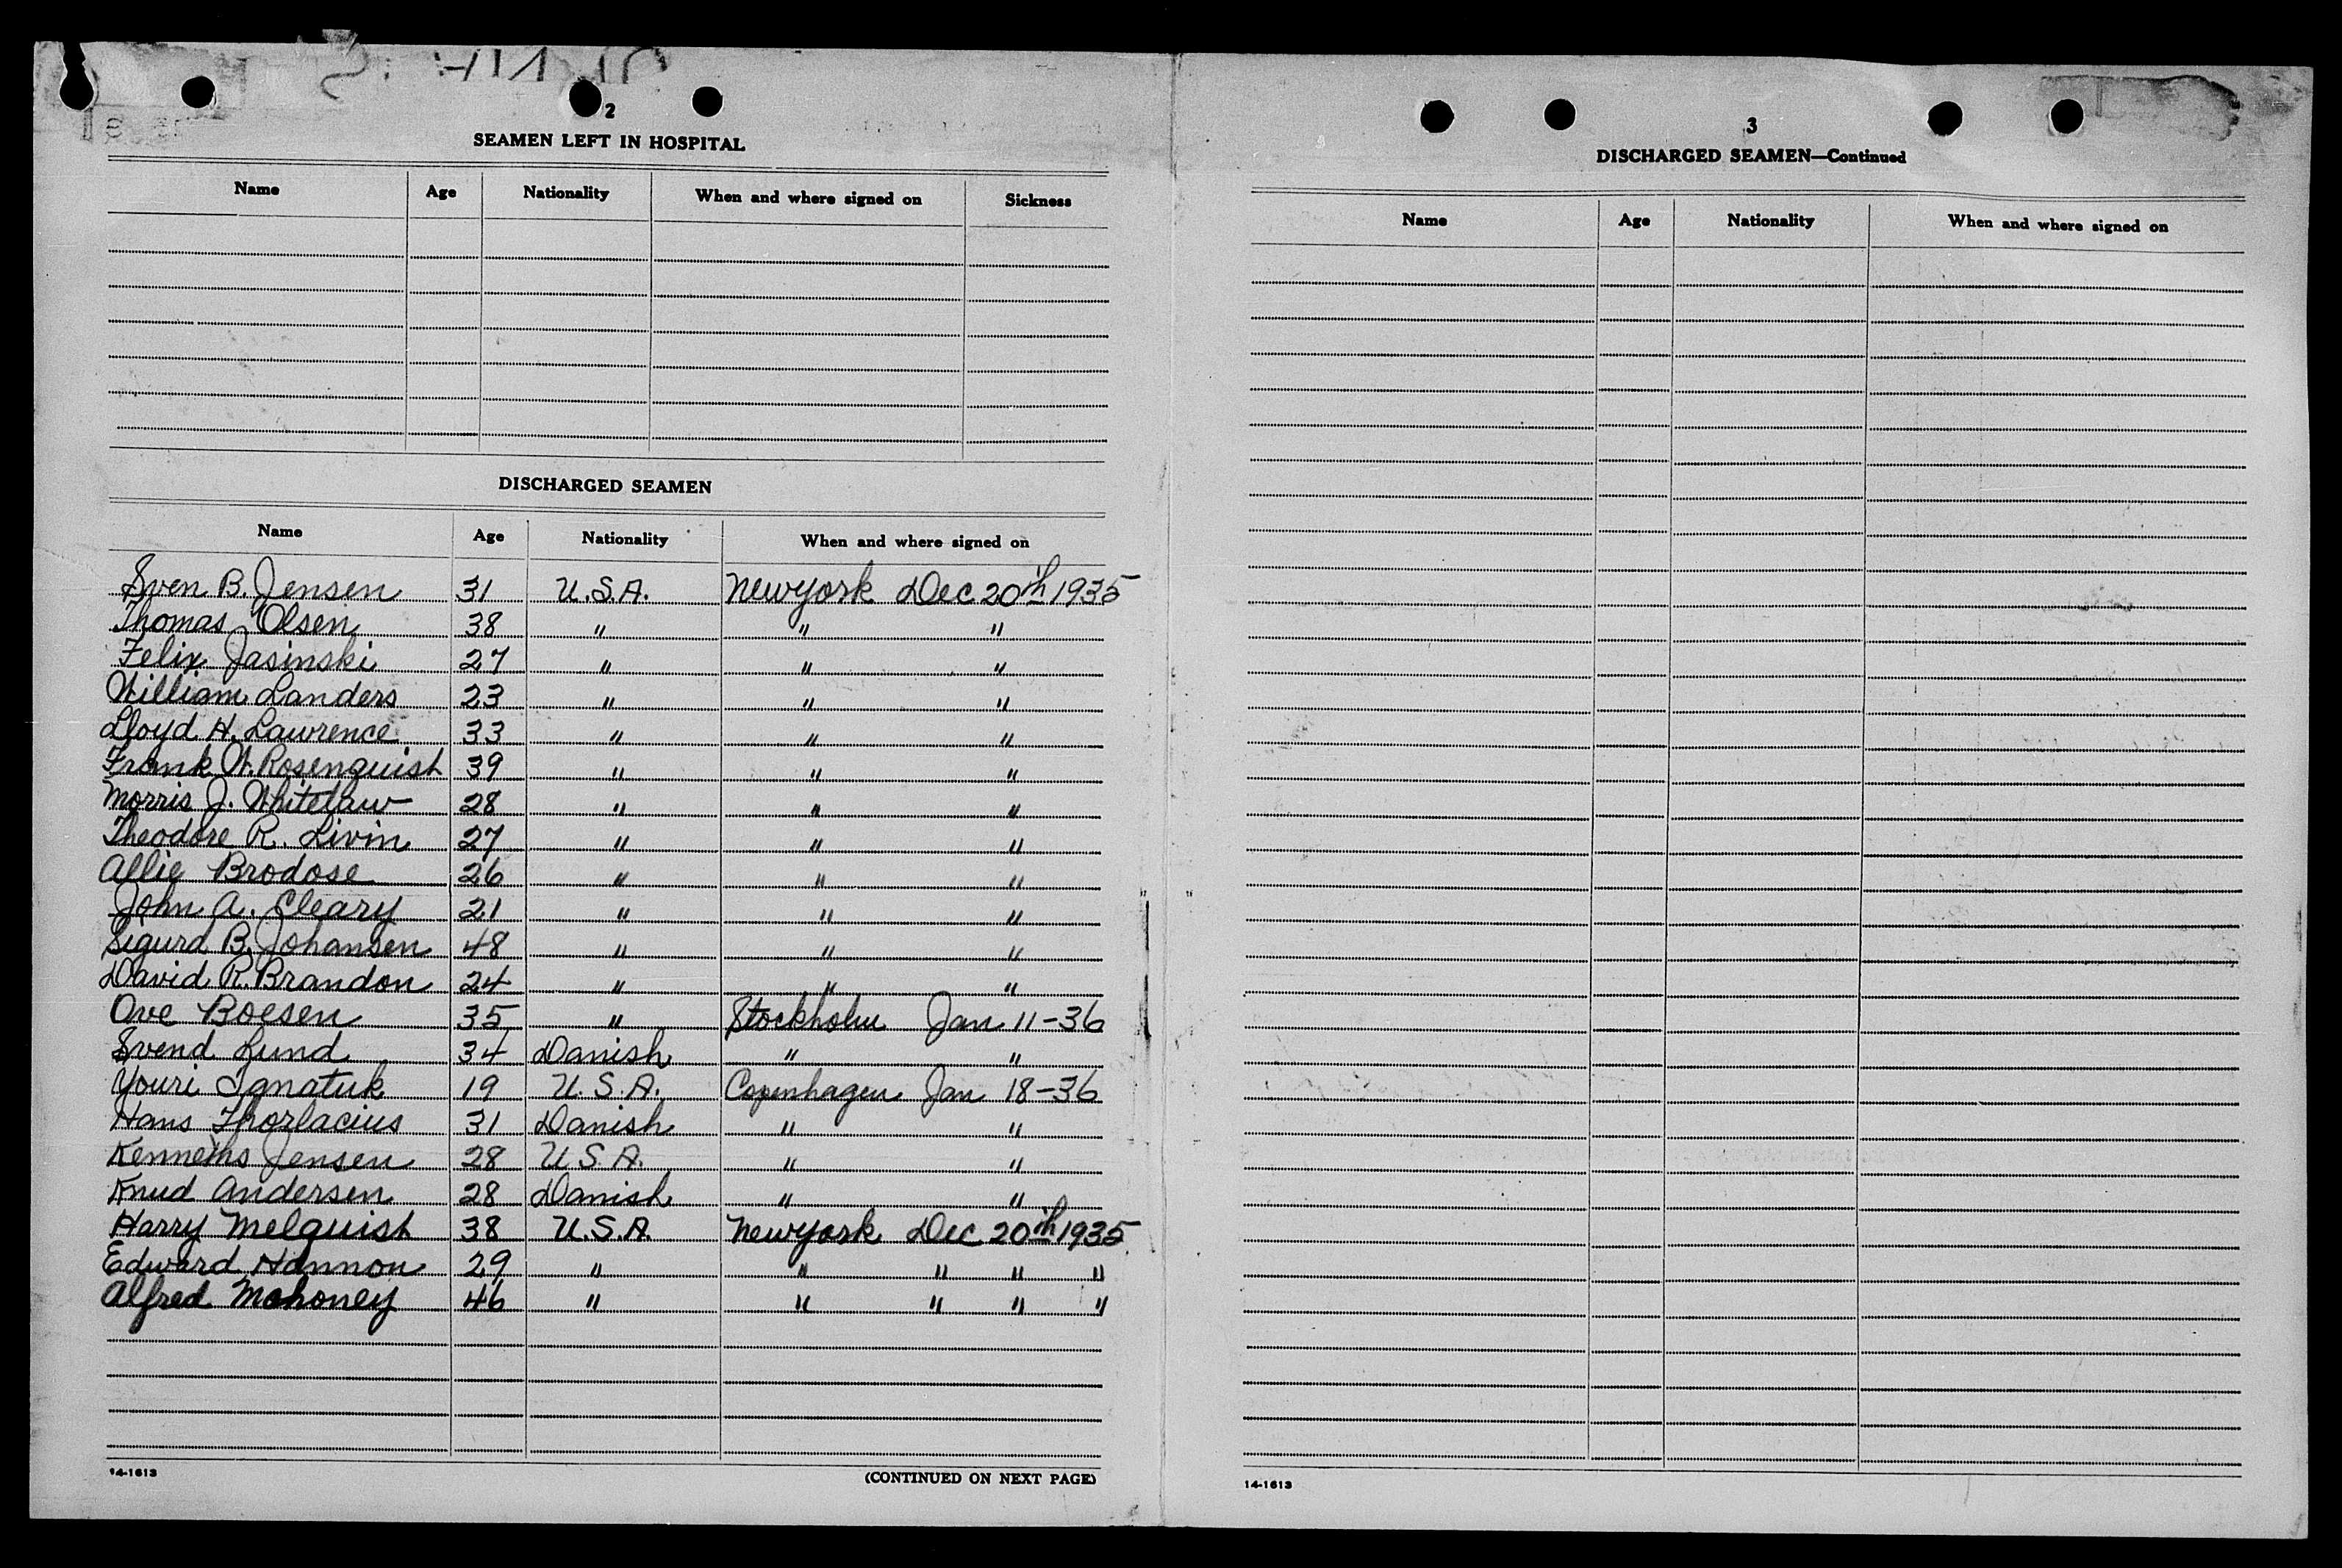 2
SEAMEN LEFT IN HOSPITAL
Name Age Nationality When and where signed on Sickness
DISCHARGED SEAMEN
Name Age Nationality When and where signed on
Sven B. Jensen 31 U.S.A. New York Dec 20th 1935
Thomas Olsen 38 " " "
Felix Jasinski 27 " " "
William Landers 23 " " "
Lloyd H. Lawrence 33 " " "
Frank W. Rosenquist 39 " " "
Morris J. Whitelaw 28 " " "
Theodore R. Livin 27 " " "
Allie Brodose 26 " " "
John A. Cleary 21 " " "
Sigurd B. Johansen 48 " " "
David R. Brandon 24 " " "
Ove Boesen 35 " Stockholm Jan 11-36
Svend Lund 34 Danish " "
Youri Ignatuk 19 U.S.A. Copenhagen Jan 18-36
Hans Thorlacius 31 Danish " "
Kenneths Jensen 28 U.S.A. " "
Knud Andersen 28 Danish " "
Harry Melquist 38 U.S.A. New York Dec 20th 1935
Edward Hannon 29 " " " " "
Alfred Mahoney 46 " " " " "
14-1613 (CONTINUED ON NEXT PAGE)
3
DISCHARGED SEAMEN—Continued
Name Age Nationality When and where signed on
14-1613